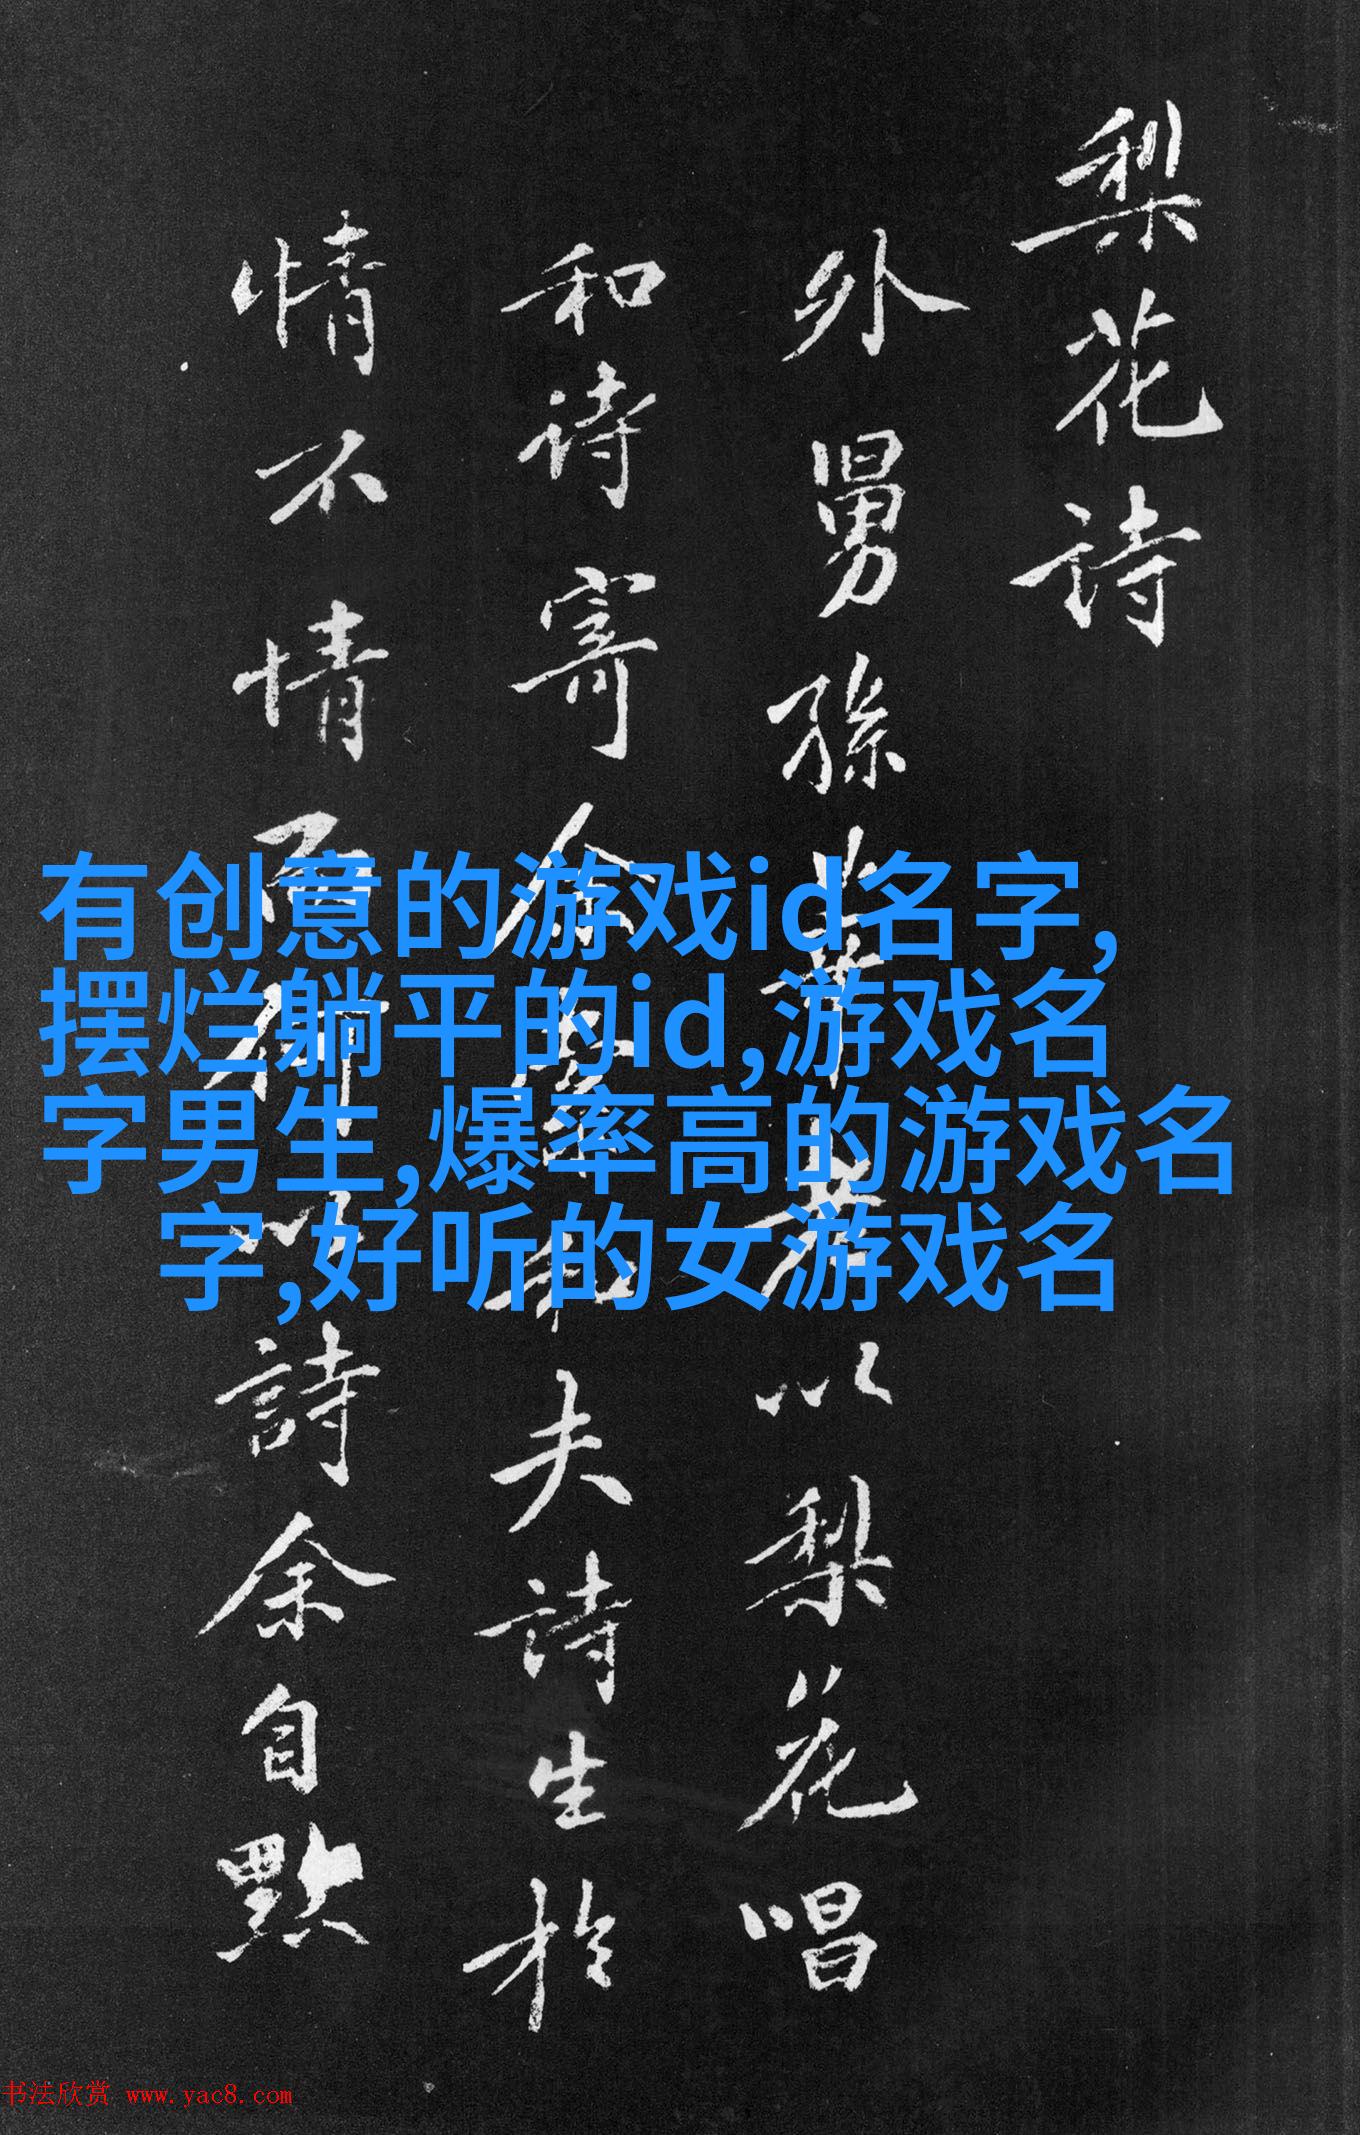 梨花诗
外舅孫莘老以梨花唱
和诗寄余余和夫詩生於
情不情而作以詩余自點
有创意的游戏id名字,
摆烂躺平的id,游戏名
字男生,爆率高的游戏名
字,好听的女游戏名
书法欣赏 www.yac8.com